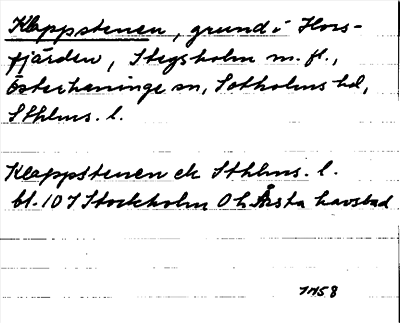 Klappstenen, grund i Hors-
fjärden, Stegsholm m. fl.,
Österhaninge sn, Sotholms hd,
Sthlms. l.
Klappstenen ek Sthlms. l.
bl. 10 I Stockholm Oh Årsta havsbad
1958